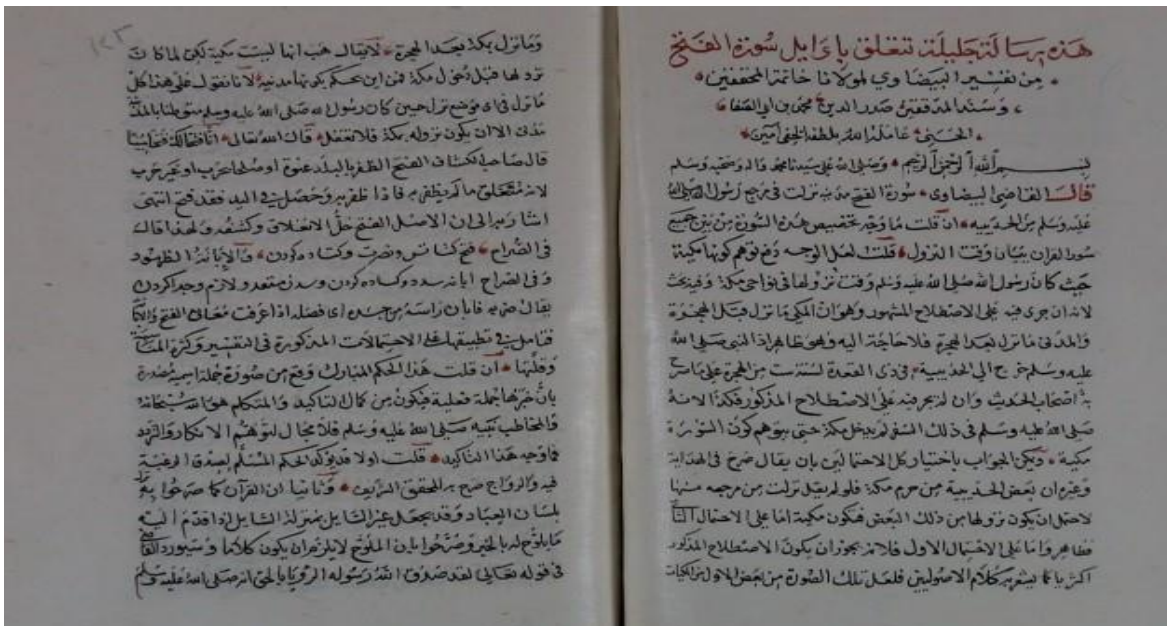 هذه رسالة جليلة تتعلق باوايل سورة الفتح
من تفسير البيضاوي لمولانا خاتمة المحققين
وسند المدققين صدر الدين محمد بن ابي الصفا
الحسني عامله الله بلطفه الخفي امين
بسم الله الرحمن الرحيم وصلى الله على سيدنا محمد واله وصحبه وسلم
قال القاضي البيضاوي سورة الفتح مدنية نزلت في مرجع رسول الله صلى الله
عليه وسلم من الحديبيه ان قلت ما وجه تخصيص هذه السورة من بين جميع
سور القران ببيان وقت النزول قلت لعل الوجه دفع توهم كونها مكية
حيث كان رسول الله صلى الله عليه وسلم وقت نزولها في نواحي مكة وفيه بحث
لانه ان جرى فيه على الاصطلاح المشهور وهو ان المكي ما نزل قبل الهجرة
والمدني ما نزل بعد الهجرة فلا حاجة اليه وهو ظاهر اذ النبي صلى الله
عليه وسلم خرج الى الحديبية في ذي القعدة لسنة ست من الهجرة على ما صرح
به اصحاب الحديث وان لم يجر فيه على الاصطلاح المذكور فكذا لانه
صلى الله عليه وسلم في ذلك السفر لم يدخل مكة حتى يتوهم كون السورة
مكية ويمكن الجواب باختيار كل الاحتمالين بان يقال صرح في الهداية
وغيره ان بعض الحديبية من حرم مكة فلو لم يقل نزلت من مرجعه منها
لاحتمل ان يكون نزولها من ذلك البعض فتكون مكية اما على الاحتمال
فظاهر واما على الاحتمال الاول فلانه يجوز ان يكون الاصطلاح المذكور
اكثريا كما يشعر به كلام الاصوليين فلعل تلك الصورة من بعض الاول من المكيات
وما نزل بمكة بعد الهجرة لا يقال هب انها ليست مكية لكن لما كانت
نزولها قبل دخول مكة فمن اين يحكم بكونها مدنية لانا نقول على هذا كل
ما نزل في اي موضع نزل حين كان رسول الله صلى الله عليه وسلم متوطنا
مدني الا ان يكون نزوله بمكة فلا تغفل قال الله تعالى انا فتحنا لك فتحا مبينا
قال صاحب الكشاف الفتح الظفر بالبلد عنوة او صلحا بحرب او بغير حرب
لانه منغلق ما لم يظفر به فاذا ظفر به وحصل في اليد فقد فتح انتهى
اشار به الى ان الاصل الفتح حل الانغلاق وكشفه ولهذا قال
في الصراح فتح ونصرت وكشاده كردن والابانة الظهور
وفي الصراح ابانة وكشاده كردن متعد ولازم وجدا كردن
يقال ضربه فابان راسه من جسده اي فصله اذا عرفت معاني الفتح
فتامل في تطبيقها على الاحتمالات المذكورة في التفسير وكثرة
وقلتها ان قلت هذا الحكم المبارك وقع من صورة جملة اسمية مصدرة
بان خبرها جملة فعلية فيكون من كمال التاكيد والمتكلم هو الله سبحانه
والمخاطب نبيه صلى الله عليه وسلم فلا مجال لتوهم الانكار والتردد
فما وجه هذا التاكيد قلت اولا قد يؤكد الحكم المسلم لصدق الرغبة
فيه والرواج صرح به المحقق الشريف وثانيا ان القران كما صرحوا به
بلسان العباد وقد يجعل غير السايل بمنزلة السايل اذا قدم اليه
ما يلوح له بالخبر وصرحوا بان الملوح لا يلزم ان يكون كلاما وسيورد
في قوله تعالى لقد صدق الله رسوله الرويا بالحق انه صلى الله عليه وسلم